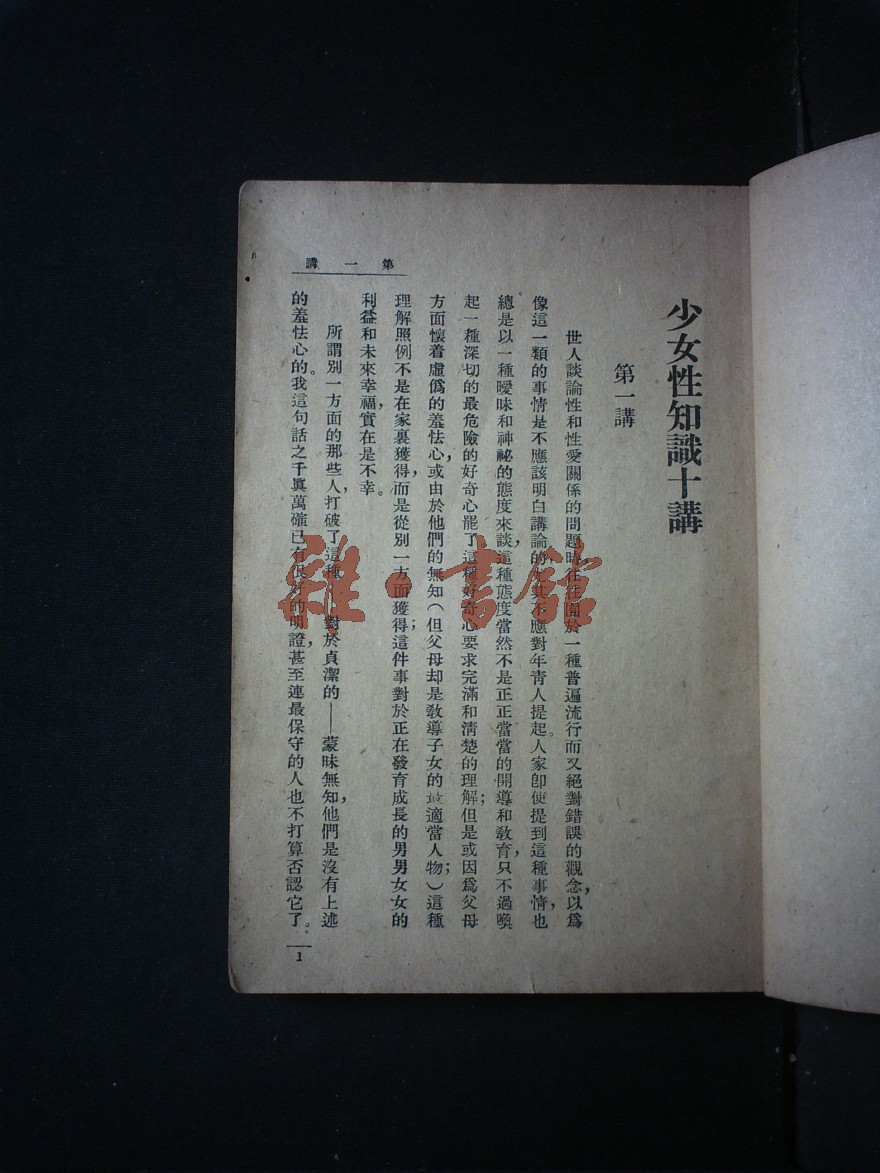 少女性知識十講
第一講
世人談論性和性愛關係的問題時往往囿於一種普遍流行而又絕對錯誤的觀念，以爲
像這一類的事情是不應該明白講論的，尤其不應對年青人提起。人家卽使提到這種事情，也
總是以一種曖昧和神祕的態度來談，這種態度當然不是正正當當的開導和敎育，只不過喚
起一種深切的最危險的好奇心罷了。這種好奇心要求完滿和淸楚的理解；但是或因爲父母
方面懷着虛僞的羞怯心，或由於他們的無知（但父母却是敎導子女的最適當人物）；這種
理解照例不是在家裏獲得，而是從別一方面獲得；這件事對於正在發育成長的男男女女的
利益和未來幸福，實在是不幸。
所謂別一方面的那些人，打破了這種——對於貞潔的——蒙昧無知，他們是沒有上述
的羞怯心的。我這句話之千眞萬確已有很好的明證，甚至連最保守的人也不打算否認它了。
第一講
1
雅·書館